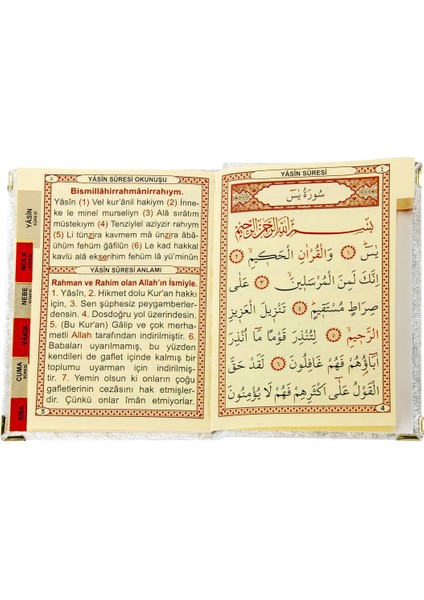 YÂSÎN SÛRESİ OKUNUŞU
Bismillâhirrahmânirrahıym.
Yâsîn (1) Vel kur'ânil hakiym (2) İnne-
ke le minel murseliyn (3) Alâ sırâtım
müstekıym (4) Tenziylel aziyzir rahıym
(5) Li tünzira kavmem mâ ünzira âbâ-
ühüm fehüm ğâfilûn (6) Le kad hakkal
kavlü alâ ekserihim fehüm lâ yü'minûn
YÂSÎN SÛRESİ ANLAMI
Rahman ve Rahim olan Allah'ın İsmiyle.
1. Yâsîn, 2. Hikmet dolu Kur'an hakkı
için, 3. Sen şüphesiz peygamberler-
densin. 4. Dosdoğru yol üzerindesin.
5. (Bu Kur'an) Gâlip ve çok merha-
metli Allah tarafından indirilmiştir. 6.
Babaları uyarılmamış, bu yüzden
kendileri de gaflet içinde kalmış bir
toplumu uyarman için indirilmiş-
tir. 7. Yemin olsun ki onların çoğu
gafletlerinin cezasını hak etmişler-
dir. Çünkü onlar îman etmiyorlar.
5
YÂSÎN
MÜLK
NEBE
VÂKIA
CUMA
KISA
YÂSÎN SÛRESİ
سُورَةُ يٰسٓ
بِسْمِ اللّٰهِ الرَّحْمٰنِ الرَّحِيمِ
يٰسٓ ﴿١﴾ وَالْقُرْاٰنِ الْحَكِيمِ ﴿٢﴾
اِنَّكَ لَمِنَ الْمُرْسَلِينَ ﴿٣﴾ عَلٰى
صِرَاطٍ مُسْتَقِيمٍ ﴿٤﴾ تَنْزِيلَ الْعَزِيزِ
الرَّحِيمِ ﴿٥﴾ لِتُنْذِرَ قَوْمًا مَٓا اُنْذِرَ
اٰبَٓاؤُهُمْ فَهُمْ غَافِلُونَ ﴿٦﴾ لَقَدْ حَقَّ
الْقَوْلُ عَلٰٓى اَكْثَرِهِمْ فَهُمْ لَا يُؤْمِنُونَ
4